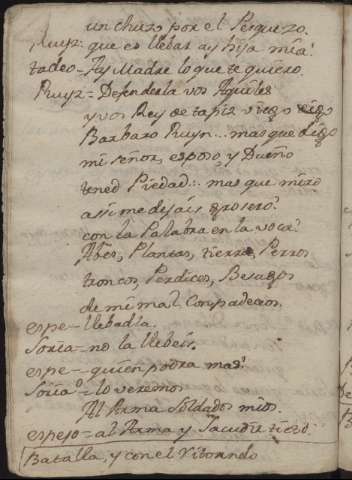 un chuzo por el Pesquezo.
Ruyz= que es llebar ay hija mia!
tadeo= Ay Madre lo que te quiero.
Ruyz= Defendedla vos Aquiles
y vos Rey de tapiz viejo
Barbaro Ruyn... mas que digo
mi señor, esposo, y Dueño
tened Piedad: mas que miro
asi me dejais grosero?
con la Palabra en la voca?
Abes, Plantas, tierra, Perros
troncos, Perdices, Besugos
de mi mal Conpadeceos.
espe= llebadla.
Soria= no la llebeis.
espe= quien podra mas?
Soria= lo veremos
Al Arma Soldados mios.
espejo= al Arma y Sacudir tiezo.
Batalla, y con el